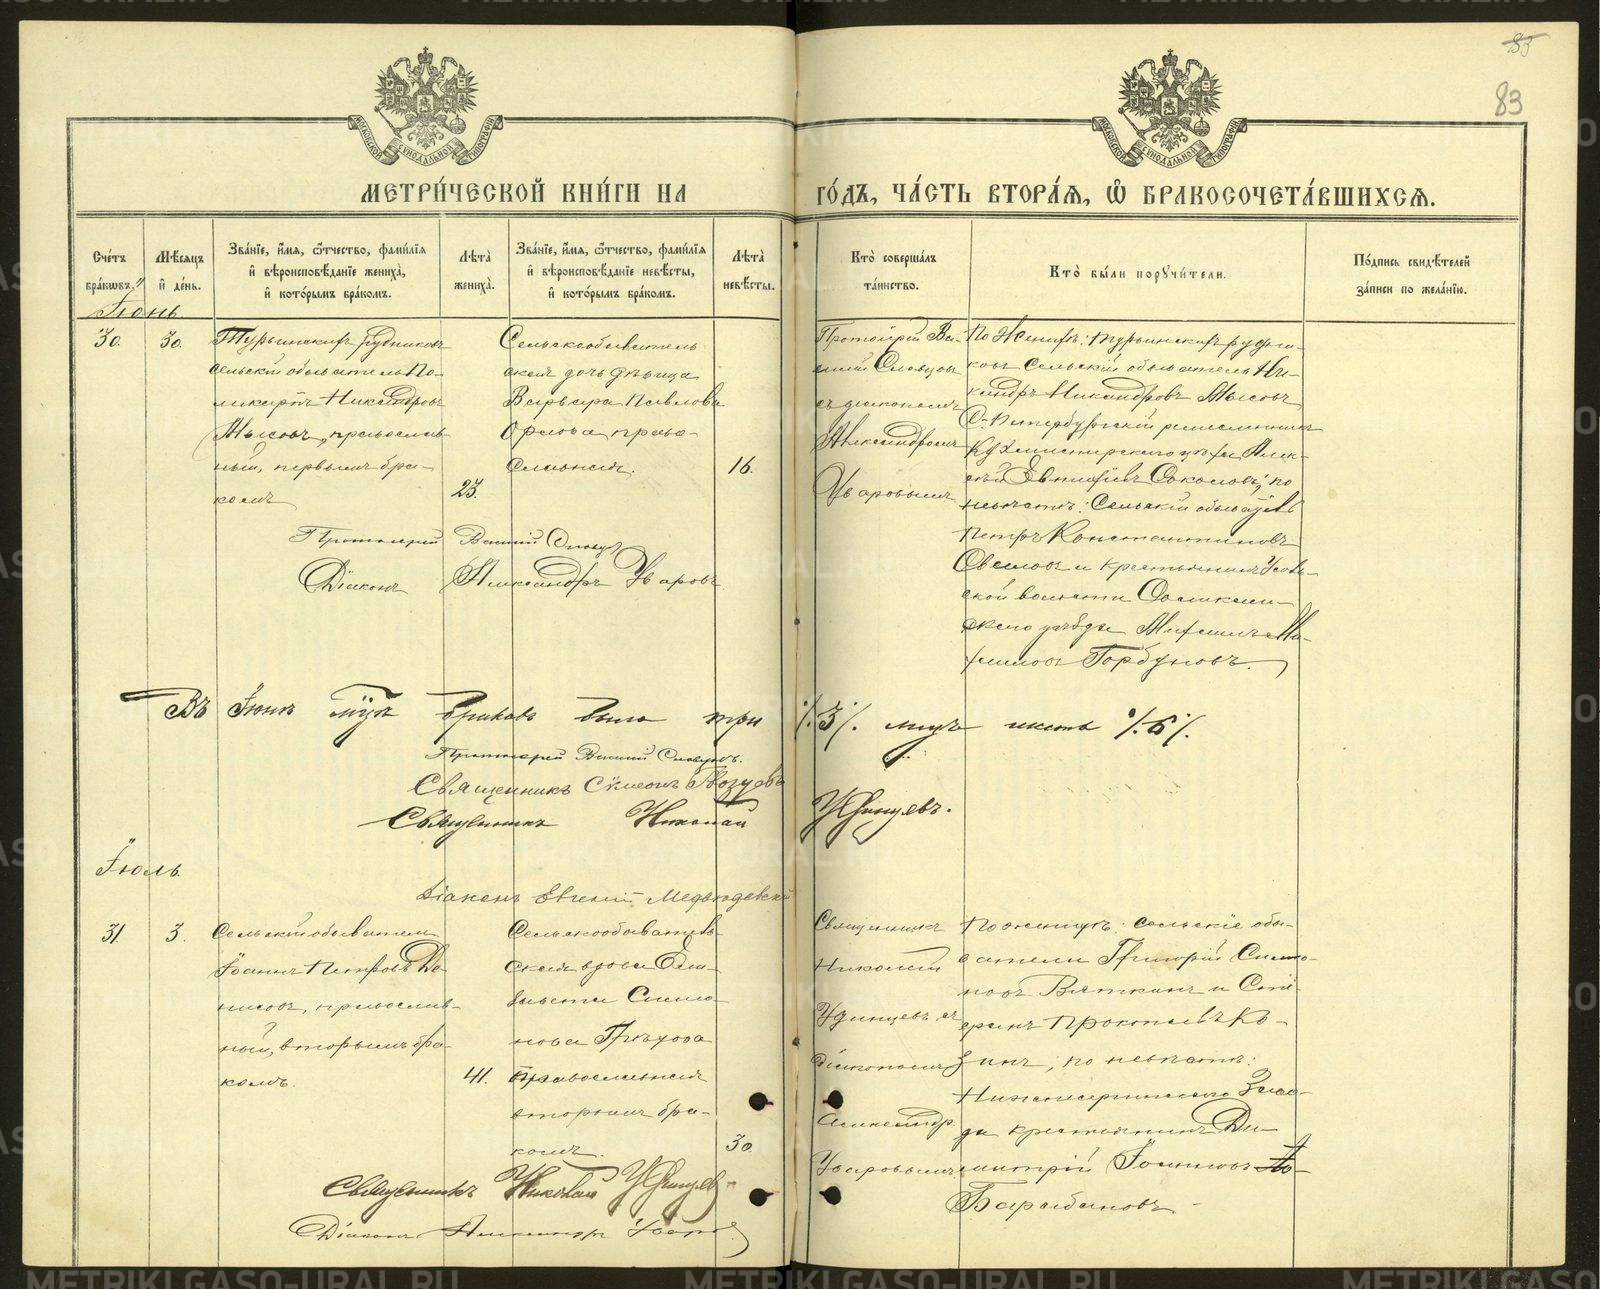 83
83
МЕТРИ́ЧЕСКОЙ КНИ́ГИ НА
ГО́ДЪ, ЧА́СТЬ ВТОРА́Я, Ѡ҆ БРАКОСОЧЕТА́ВШИХСЯ.
Сче́тъ бра́ковъ.
Мѣ́сяцъ и҆ де́нь.
Зва́нїе, и҆́мя, ѻ҆́тчество, фами́лїя и҆ вѣроисповѣ́данїе жениха̀, и҆ кото́рымъ бра́комъ.
Лѣ́та̀ жениха̀.
Зва́нїе, и҆́мя, ѻ҆́тчество, фами́лїя и҆ вѣроисповѣ́данїе невѣ́сты, и҆ кото́рымъ бра́комъ.
Лѣ́та̀ невѣ́сты.
Кто̀ соверша́лъ та́инство.
Кто̀ бы́ли поручи́тели.
По́дпись свидѣ́телей за́писи по жела́нїю.
Іюнь
30.
30.
Турьинскихъ рудниковъ
сельскій обыватель По-
ликарпъ Никандровъ
Мысовъ, православ-
ный, первымъ бра-
комъ
23.
Сельскообыватель
ская дочь дѣвица
Варвара Павлова
Орлова право-
славная.
16.
Протоіерей Ва-
силій Словцовъ
съ діакономъ
Александромъ
Уваровымъ
По женихѣ: Турьинскихъ рудни-
ковъ сельскій обыватель Ни-
кандръ Никандровъ Мысовъ
С.-Петербургскій ремесленникъ
Алек-
сѣй Соколовъ; по
невѣстѣ: Сельскій обыват.
Петръ Константиновъ
и крестьянинъ Усоль-
ской волости Соликам-
скаго уѣзда Михаилъ Ми-
хаиловъ Горбуновъ.
Протоіерей Василій Словцовъ
Діаконъ Александръ Уваровъ
Въ Іюнѣ муж. браковъ было три ./.3./. муж. шесть ./.6./.
Протоіерей Василій Словцовъ.
Священникъ Сѵмеонъ
Священникъ Николай Удинцевъ.
Іюль.
Діаконъ Евгеній
31.
3.
Сельскій обыватель
Іоаннъ Петровъ До-
нисовъ, православ-
ный, вторымъ бра-
комъ.
41.
Сельскообыватель-
ская вдова Ели-
завета Симео-
нова Глухова
православная
вторымъ бра-
комъ.
30.
Священникъ
Николай
Удинцевъ съ
діакономъ
Александр.
Уваровымъ
По женихѣ: сельскіе обы-
ватели Григорій Симео-
новъ Вяткинъ и Сте-
фанъ Прокопьевъ Ко-
зинъ; по невѣстѣ:
Нижнесергинскаго заво-
да крестьянинъ Ди-
митрій Іоанновъ
Барабановъ
Священникъ Николай Удинцевъ
Діаконъ Александръ Уваровъ
METRIKI.GASO-URAL.RU